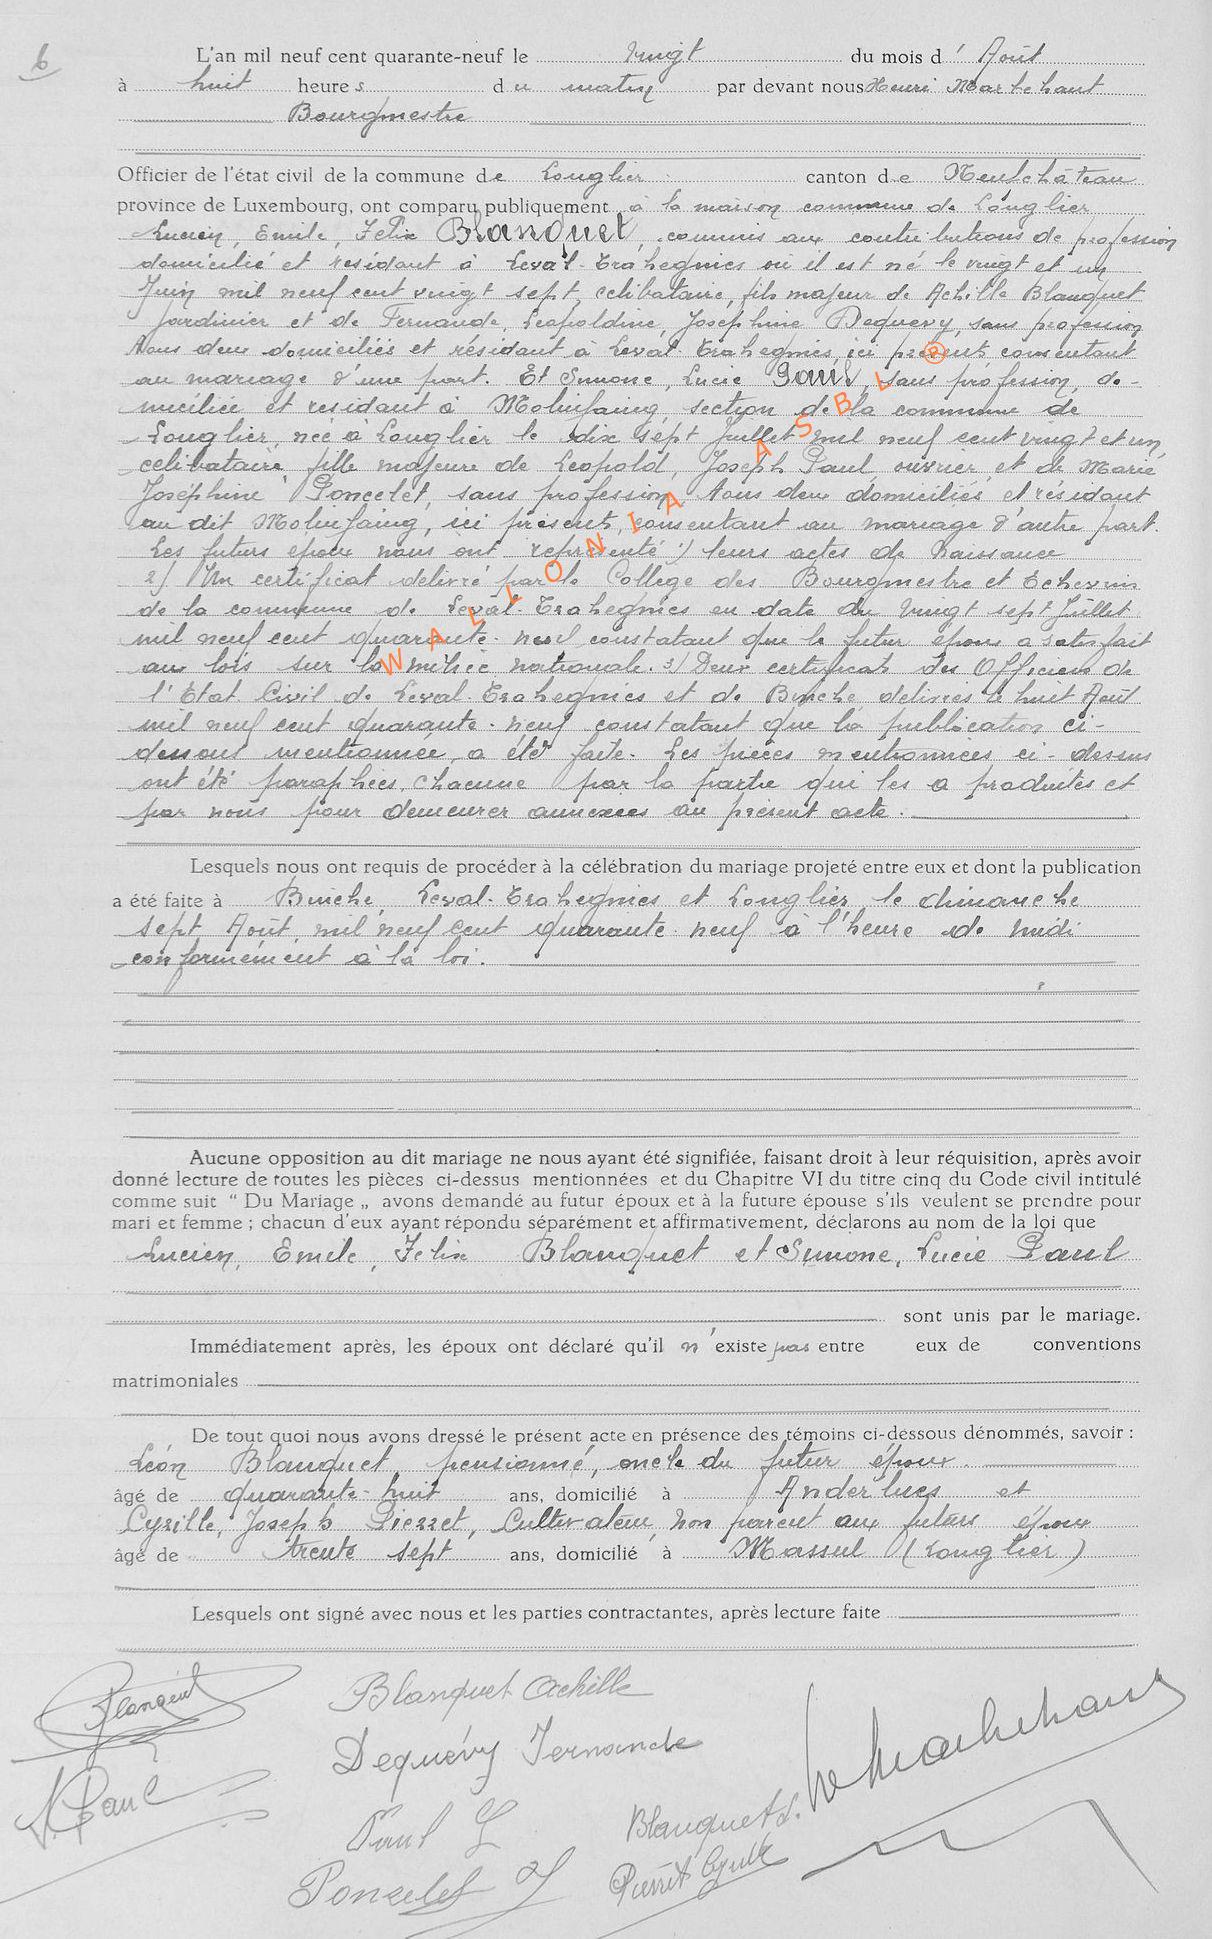 6
L'an mil neuf cent quarante-neuf le vingt du mois d' Août
à huit heures du matin par devant nous Henri Marlehant
Bourgmestre
Officier de l'état civil de la commune de Longlier canton de Neufchâteau
province de Luxembourg, ont comparu publiquement à la maison commune de Longlier
Lucien, Emile, Felix Blanquet, commis aux contributions de profession
domicilié et résidant à Leval-Trahegnies où il est né le vingt et un
Juin mil neuf cent vingt sept, celibataire, fils majeur de Achille Blanquet
Jardinier et de Fernande, Leopoldine, Josephine Dequévy, sans profession
tous deux domiciliés et résidant à Leval-Trahegnies, ici présents consentant
au mariage d'une part. Et Simone, Lucie Paul, sans profession, do-
miciliée et residant à Molinfaing, section de la commune de
Longlier, née à Longlier le dix sept Juillet mil neuf cent vingt et un,
celibataire fille majeure de Leopold, Joseph Paul ouvrier et de Marie
Joséphine Poncelet, sans profession tous deux domiciliés et résidant
au dit Molinfaing, ici présents, consentant au mariage d'autre part.
Les futurs époux nous ont représenté 1) leurs actes de Naissance
2) Un certificat delivré par le College des Bourgmestre et Echevins
de la commune de Leval-Trahegnies en date du Vingt sept Juillet
mil neuf cent quarante-neuf constatant que le futur époux a satisfait
aux lois sur la milice nationale. 3) Deux certificats des Officiers de
l'Etat Civil de Leval-Trahegnies et de Binche, delivrés le huit Août
mil neuf cent quarante-neuf constatant que la publication ci-
dessous mentionnée, a été faite. Les pièces mentionnées ci-dessus
ont été paraphées, chacune par la partie qui les a produites et
par nous pour demeurer annexées au présent acte.
WALLONIA ASBL ®
Lesquels nous ont requis de procéder à la célébration du mariage projeté entre eux et dont la publication
a été faite à Binche, Leval-Trahegnies et Longlier, le dimanche
sept Août, mil neuf cent quarante-neuf à l'heure de midi
conformément à la loi.
Aucune opposition au dit mariage ne nous ayant été signifiée, faisant droit à leur réquisition, après avoir
donné lecture de toutes les pièces ci-dessus mentionnées et du Chapitre VI du titre cinq du Code civil intitulé
comme suit “ Du Mariage „ avons demandé au futur époux et à la future épouse s'ils veulent se prendre pour
mari et femme ; chacun d'eux ayant répondu séparément et affirmativement, déclarons au nom de la loi que
Lucien, Emile, Felix Blanquet et Simone, Lucie Paul
sont unis par le mariage.
Immédiatement après, les époux ont déclaré qu'il n'existe pas entre eux de conventions
matrimoniales
De tout quoi nous avons dressé le présent acte en présence des témoins ci-dessous dénommés, savoir :
Léon Blanquet, pensionné, oncle du futur époux.
âgé de quarante-huit ans, domicilié à Anderlues et
Cyrille, Joseph Pierret, Cultivateur, non parent aux futurs époux
âgé de trente sept ans, domicilié à Massul (Longlier)
Lesquels ont signé avec nous et les parties contractantes, après lecture faite
Blanquet
Blanquet Achille
Dequévy Fernande
S. Paul
Paul L
Blanquet L.
Poncelet J
Pierret Cyrille